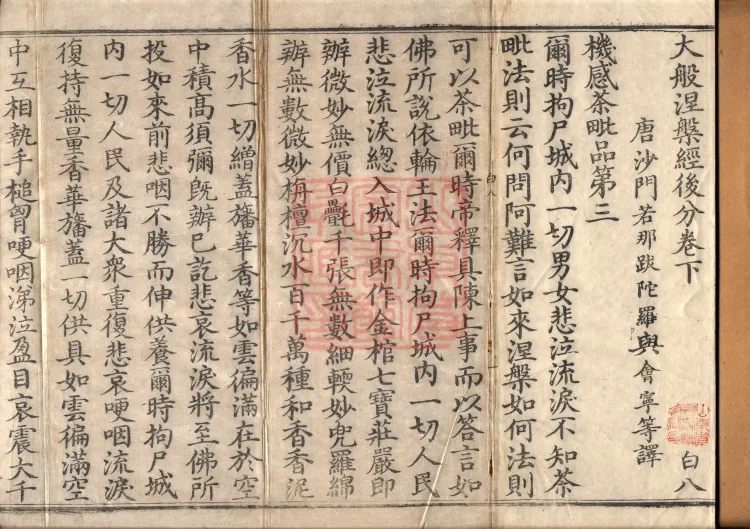 大般涅槃經後分卷下
白八
唐沙門若那跋陀羅與會寧等譯
機感茶毗品第三
爾時拘尸城内一切男女悲泣流淚不知茶
毗法則云何問阿難言如來涅槃如何法則
白八
可以茶毗爾時帝釋具陳上事而以答言如
佛所說依輪王法爾時拘尸城内一切人民
悲泣流淚緫入城中即作金棺七寶莊嚴即
辦微妙無價白㲲千張無數細輭妙兜羅綿
辦無數微妙栴檀沉水百千萬種和香香泥
香水一切繒蓋旛華香等如雲徧滿在於空
中積高須彌旣辦已訖悲哀流淚將至佛所
投如來前悲咽不勝而伸供養爾時拘尸城
内一切人民及諸大衆重復悲哀哽咽流淚
復持無量香華旛蓋一切供具如雲徧滿空
中互相執手槌胷哽咽涕泣盈目哀震大千